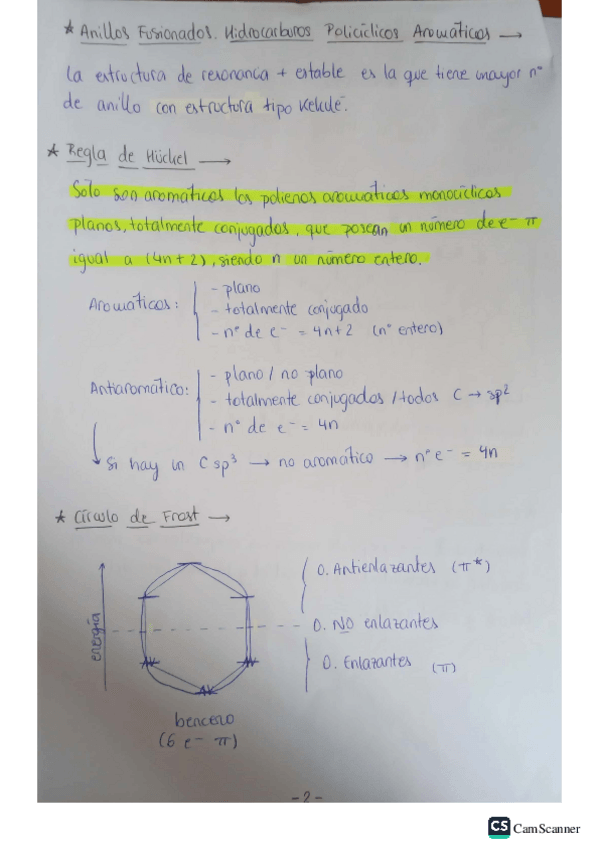 * Anillos Fusionados. Hidrocarburos Policíclicos Aromáticos →
La estructura de resonancia + estable es la que tiene mayor nº
de anillo con estructura tipo Kekulé.
* Regla de Hückel →
Sólo son aromáticos los polienos aromáticos monocíclicos
planos, totalmente conjugados, que posean un número de e⁻ π
igual a (4n+2), siendo n un número entero.
Aromáticos:
- plano
- totalmente conjugado
- nº de e⁻ = 4n+2 (nº entero)
Antiaromático:
- plano / no plano
- totalmente conjugados / todos C → sp²
- nº de e⁻ = 4n
Si hay un C sp³ → no aromático → nº e⁻ = 4n
* Círculo de Frost →
energía
O. Antienlazantes (π*)
O. NO enlazantes
O. Enlazantes (π)
benceno
(6 e⁻ π)
-2-
CS CamScanner